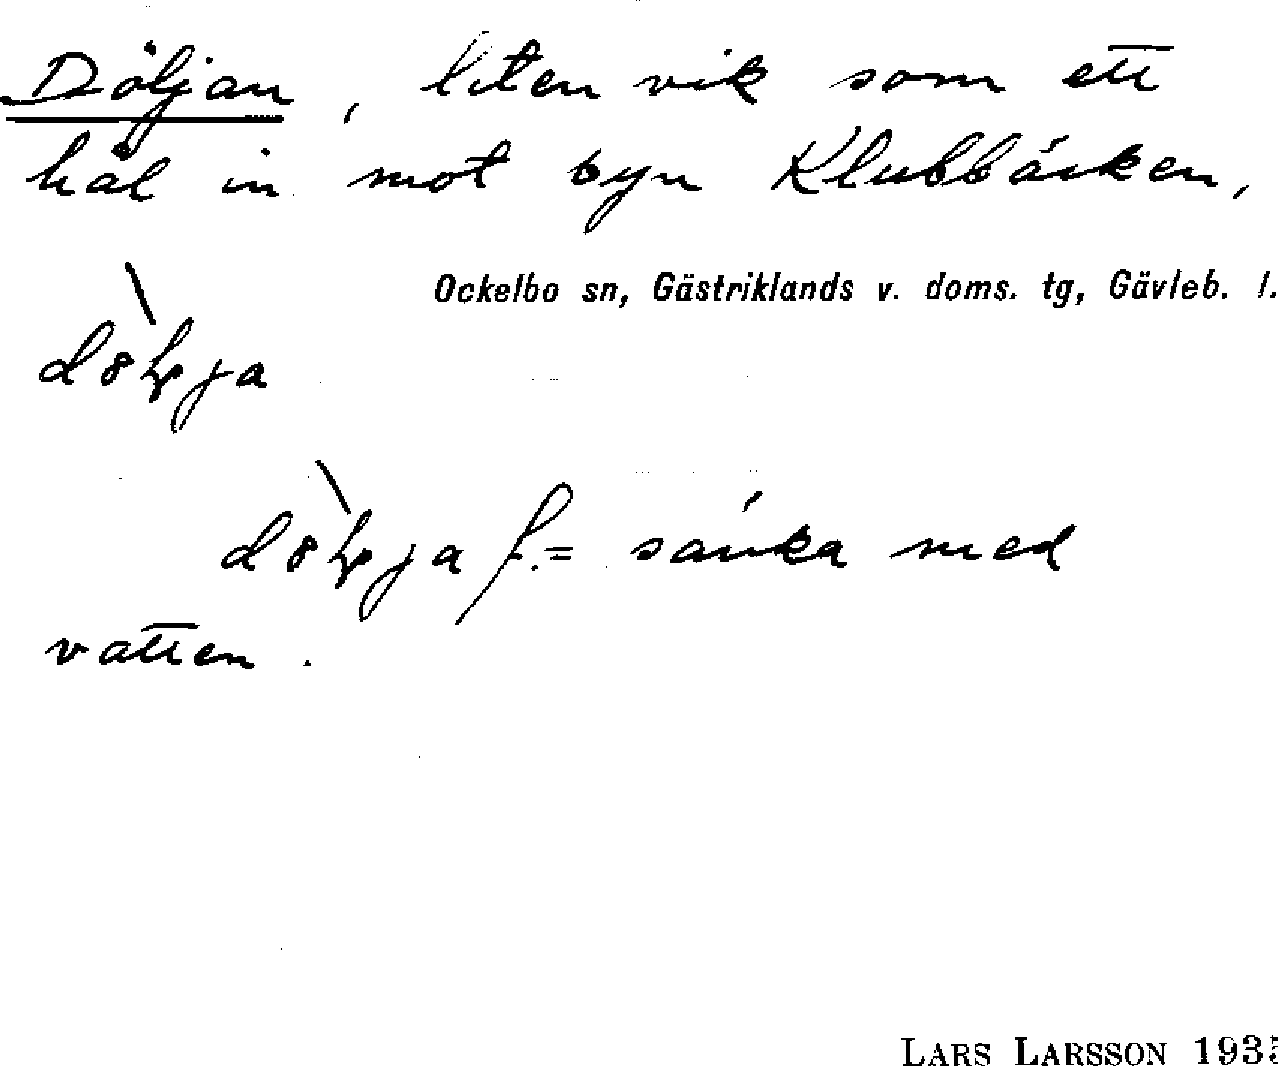 Döljan, liten vik som ett
hål in mot byn Klubbäcken,
Ockelbo sn, Gästriklands v. doms. tg, Gävleb. l.
f. = sänka med
vatten.
LARS LARSSON 193